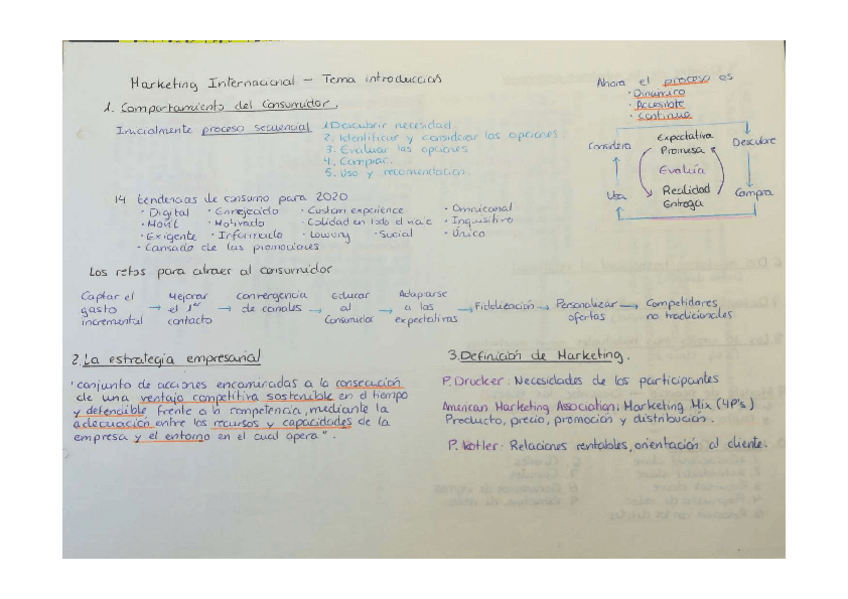 Marketing Internacional - Tema introducción
1. Comportamiento del Consumidor.
Inicialmente proceso secuencial
1. Descubrir necesidad
2. Identificar y considerar las opciones
3. Evaluar las opciones
4. Comprar
5. Uso y recomendación
Ahora el proceso es
· Dinámico
· Accesible
· Continuo
Considera
Expectativa
Promesa
Descubre
Evalúa
Usa
Realidad
Entrega
Compra
14 tendencias de consumo para 2020
· Digital · Envejecido · Custom experience · Omnicanal
· Móvil · Motivado · Calidad en todo el viaje · Inquisitivo
· Exigente · Informado · Lowcost · Social · Único
· Cansado de las promociones
Los retos para atraer al consumidor
Captar el gasto incremental → Mejorar el 1er contacto → Convergencia de canales → Educar al Consumidor → Adaptarse a las expectativas → Fidelización → Personalizar ofertas → Competidores no tradicionales
2. La estrategia empresarial
"conjunto de acciones encaminadas a la consecución
de una ventaja competitiva sostenible en el tiempo
y defendible, frente a la competencia, mediante la
adecuación entre los recursos y capacidades de la
empresa y el entorno en el cual opera".
3. Definición de Marketing.
P. Drucker: Necesidades de los participantes
American Marketing Association: Marketing Mix (4P's)
Producto, precio, promoción y distribución.
P. Kotler: Relaciones rentables, orientación al cliente.